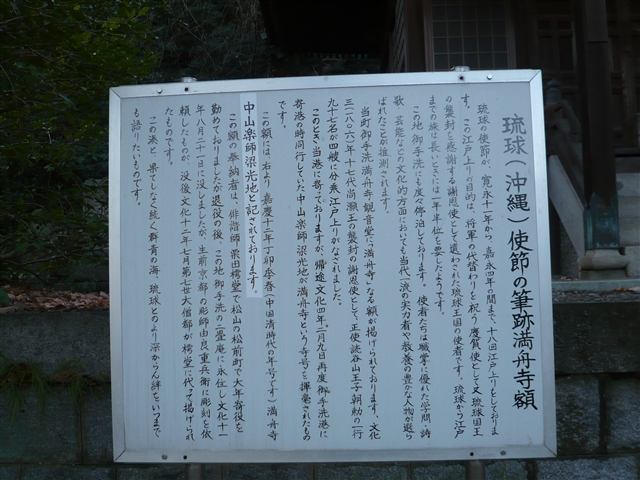 琉球(沖縄)使節の筆跡満舟寺額
琉球の使節が、寛永十一年から嘉永四年の間まで、十八回江戸上りをしておりま
す。この江戸上りの目的は、将軍の代替わりを祝う慶賀使として又琉球国王
の襲封を感謝する謝恩使として遣わされた琉球王国の使者です。琉球から江戸
までの旅は長いときには一年半位を要したようです。
この地御手洗にも度々停泊しております。使者たちは職掌に優れた学問 詩
歌 芸能などの文化的方面においても当代一流の実力者や教養の豊かな人物が選ら
ばれたことが推測されます。
当町御手洗満舟寺観音堂に「満舟寺」なる額が掲げられております。文化
三(一八〇六)年十七代尚灝王の襲封の謝恩使として、正使読谷山王子朝勅の一行
九十七名が四艘に分乗江戸上りがなされました。
このとき当港に寄っておりますが、帰途文化四年二月九日再度御手洗港に
寄港の時同行していた中山楽師 梁光地が満舟寺という寺号を揮毫されたもの
です。
この額には、右より 嘉慶十二年丁卯季春(中国清時代の年号です)満舟寺
中山楽師梁光地と記されております。
この額の奉納者は、俳諧師栗田樗堂で松山の松前町で大年寄役を
勤めておりましたが退役の後、この地御手洗の二畳庵に永住し文化十一
年八月二十一日に没しましたが、生前京都の彫師由良重兵衛に彫刻を依
頼したものが、没後文化十二年七月第七世大僧都が樗堂に代って掲げられ
たものです。
この港と、果てしなく続く群青の海、琉球とのより深からん絆をいつまで
も語りたいものです。